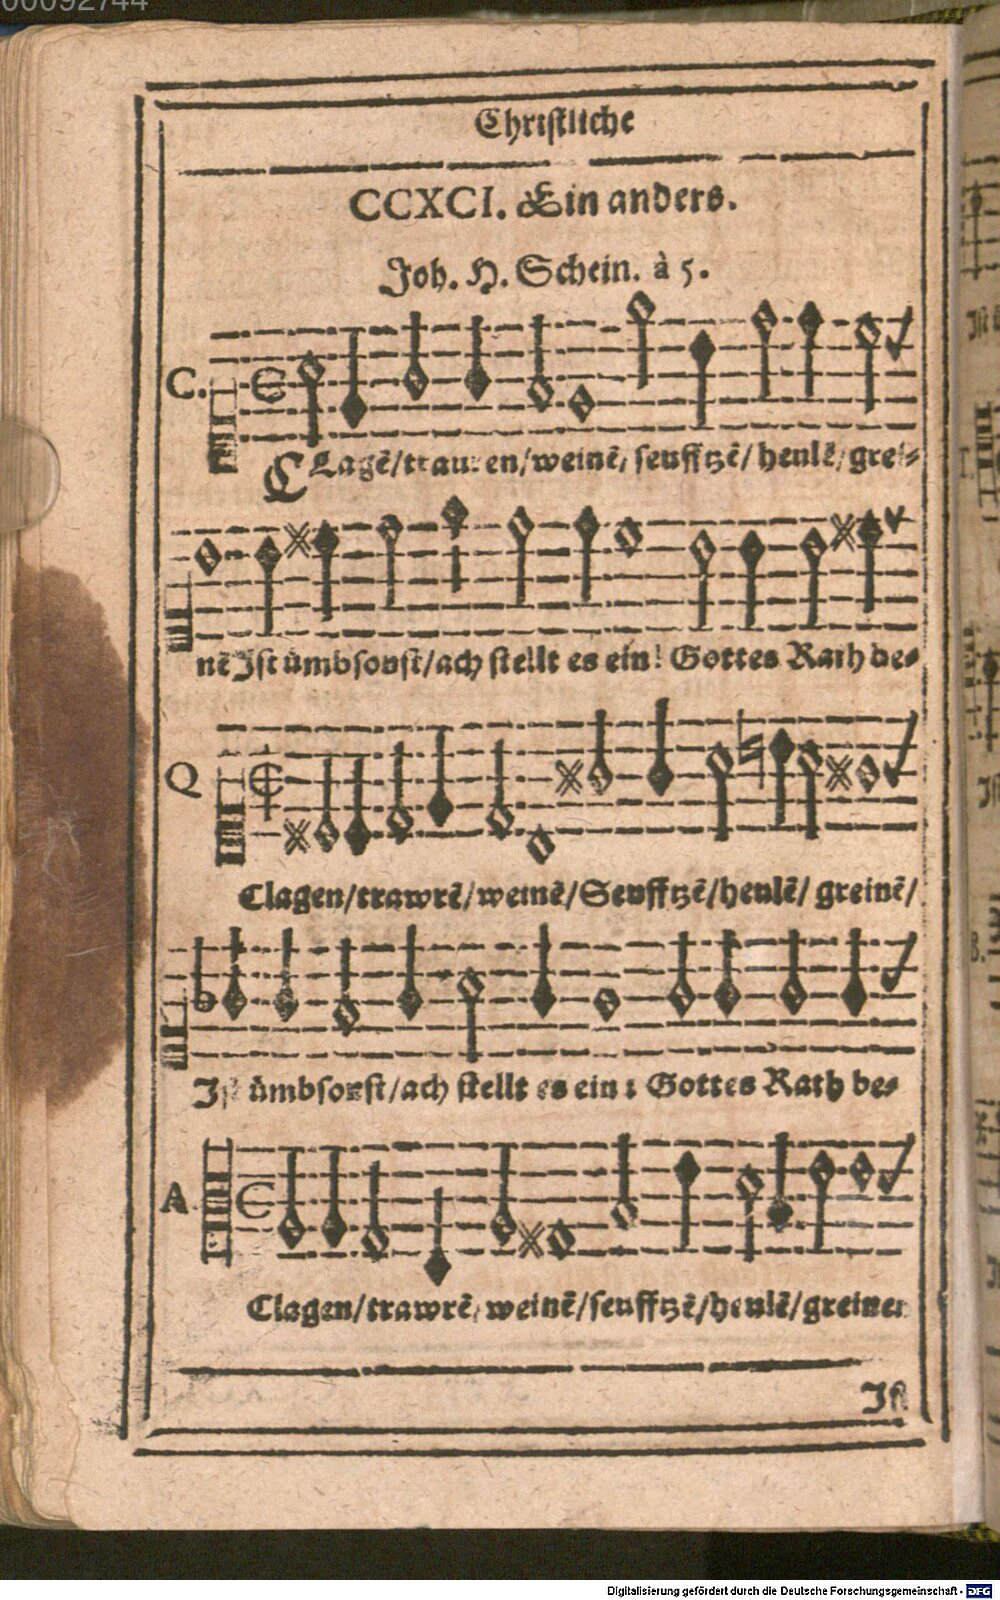 00092744
Christliche
CCXCI. Ein anders.
Joh. H. Schein. à 5.
C.
CLagẽ/trauren/weinẽ/ seufftzẽ/ heulẽ/ grei-
nẽ Ist ümbsonst/ach stellt es ein! Gottes Rath be-
Q
Clagen/trawrẽ/weinẽ/Seufftzẽ/heulẽ/ greinẽ/
Ist ümbsonst/ach stellt es ein: Gottes Rath be-
A
Clagen/trawrẽ/ weinẽ/seufftzẽ/heulẽ/greinen
Ist
Digitalisierung gefördert durch die Deutsche Forschungsgemeinschaft - DFG